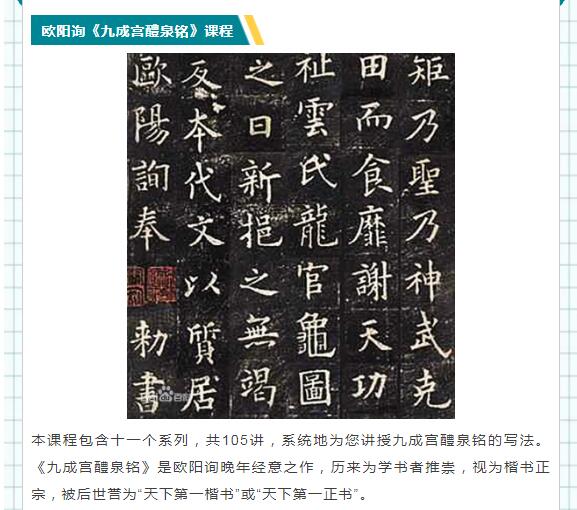 欧阳询《九成宫醴泉铭》课程
矩乃聖乃神武克
田而食靡謝天功
祉雲氏龍官龜圖
之日新挹之無竭
反本代文以質居
歐陽詢奉 勅書
本课程包含十一个系列，共105讲，系统地为您讲授九成宫醴泉铭的写法。
《九成宫醴泉铭》是欧阳询晚年经意之作，历来为学书者推崇，视为楷书正
宗，被后世誉为“天下第一楷书”或“天下第一正书”。